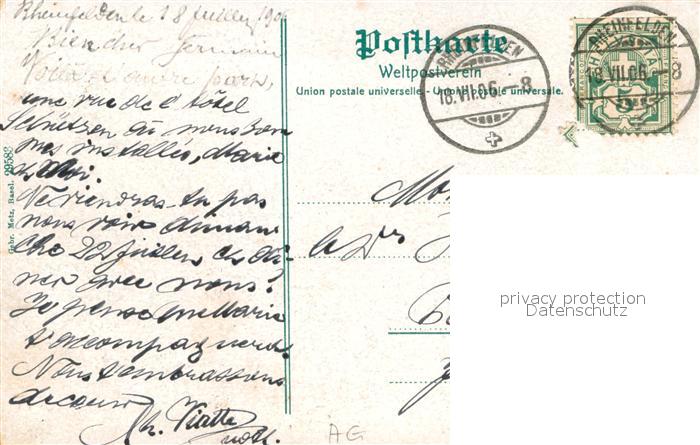 Rheinfelden le 18 Juillet 1906
Bien cher Germain
Voilà d'autre part,
une vue de l'hôtel
Schützen où nous som
mes installés, Marie
et Moi.
Ne viendras-tu pas
nous voir diman
che 22 Juillet et dî-
ner avec nous?
Je pense que Marie
t'accompagnera.
Nous t'embrassons
de coeur
Viatte
Gebr. Metz, Basel. 29583
Postkarte
Weltpostverein
Union postale universelle. - Unione postale universale.
RHEINFELDEN
18.VII.06. - 8
RHEINFELDEN
18.VII.06. - 8
HELVETIA
5
Mo
le Dr
privacy protection
Datenschutz
AG